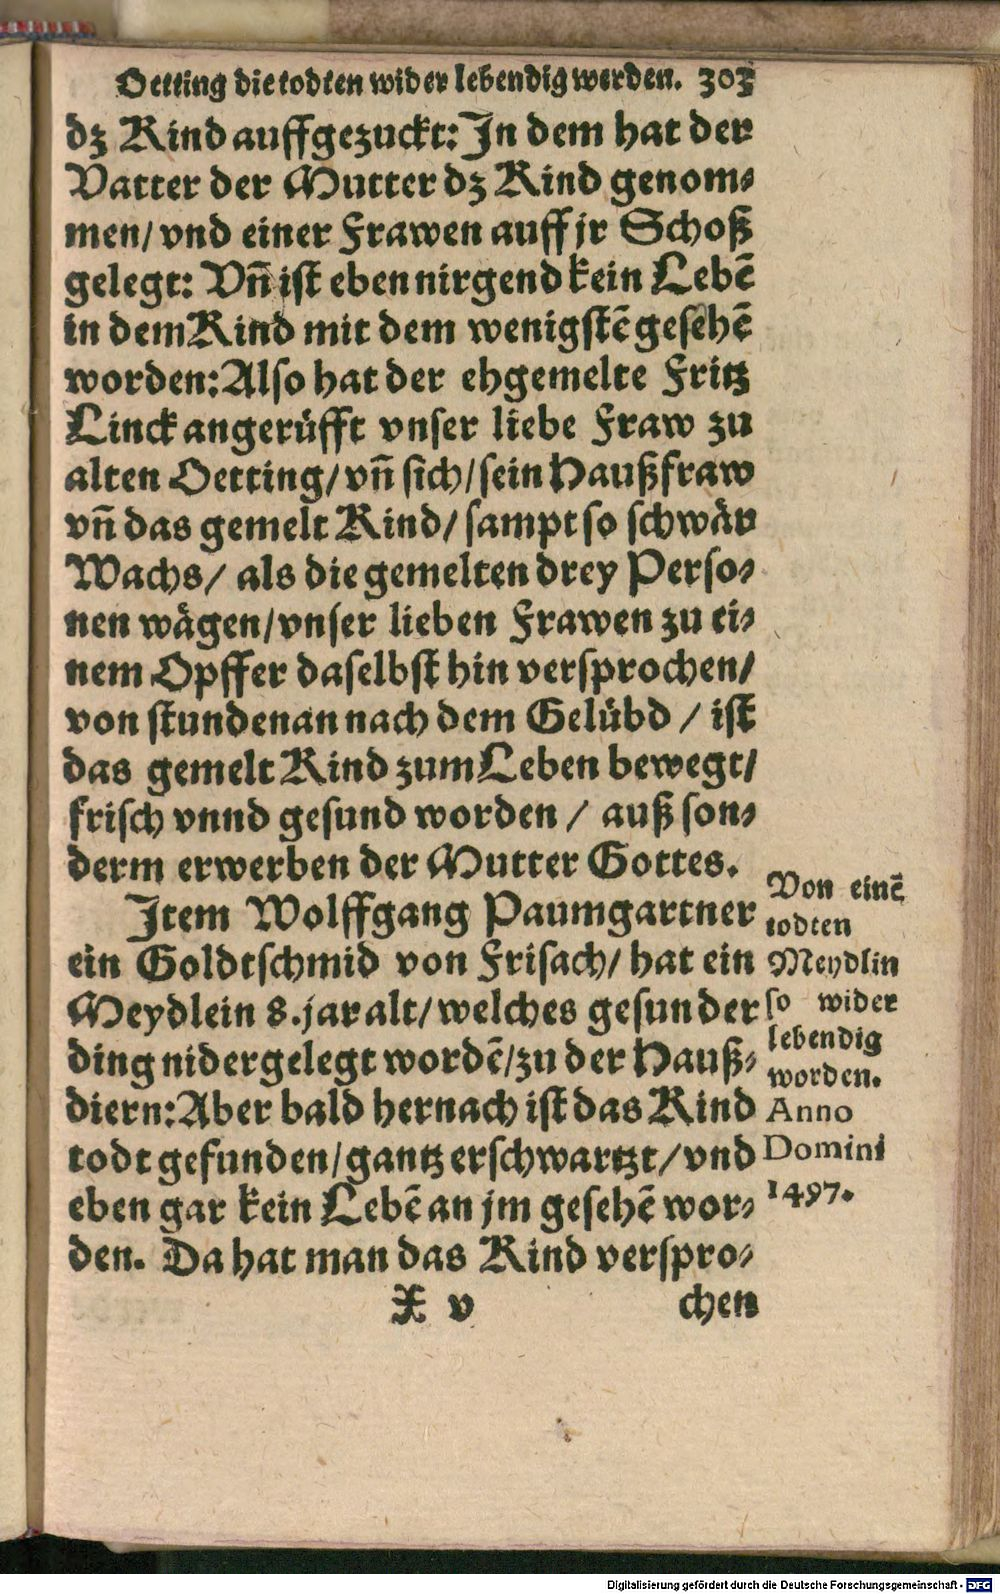 Oetting die todten wider lebendig werden. 303
dz Kind auffgezuckt: In dem hat der
Vatter der Mutter dz Kind genom⸗
men/ vnd einer Frawen auff jr Schoß
gelegt: Vñ ist eben nirgend kein Lebē
in dem Kind mit dem wenigstē gesehē
worden: Also hat der ehgemelte Fritz
Linck angerüfft vnser liebe Fraw zu
alten Oetting/ vñ sich/ sein Haußfraw
vñ das gemelt Kind/ sampt so schwär
Wachs/ als die gemelten drey Perso⸗
nen wägen/ vnser lieben Frawen zu ei⸗
nem Opffer daselbst hin versprochen/
von stunden an nach dem Gelübd / ist
das gemelt Kind zum Leben bewegt/
frisch vnnd gesund worden / auß son⸗
derm erwerben der Mutter Gottes.
Item Wolffgang Paumgartner
ein Goldtschmid von Frisach/ hat ein
Meydlein 8. jar alt/ welches gesunder
ding nidergelegt wordē/ zu der Hauß⸗
diern: Aber bald hernach ist das Kind
todt gefunden/ gantz erschwartzt/ vnd
eben gar kein Lebē an jm gesehē wor⸗
den. Da hat man das Kind verspro⸗
X v chen
Von einē
todten
Meydlin
so wider
lebendig
worden.
Anno
Domini
1497.
Digitalisierung gefördert durch die Deutsche Forschungsgemeinschaft - DFG